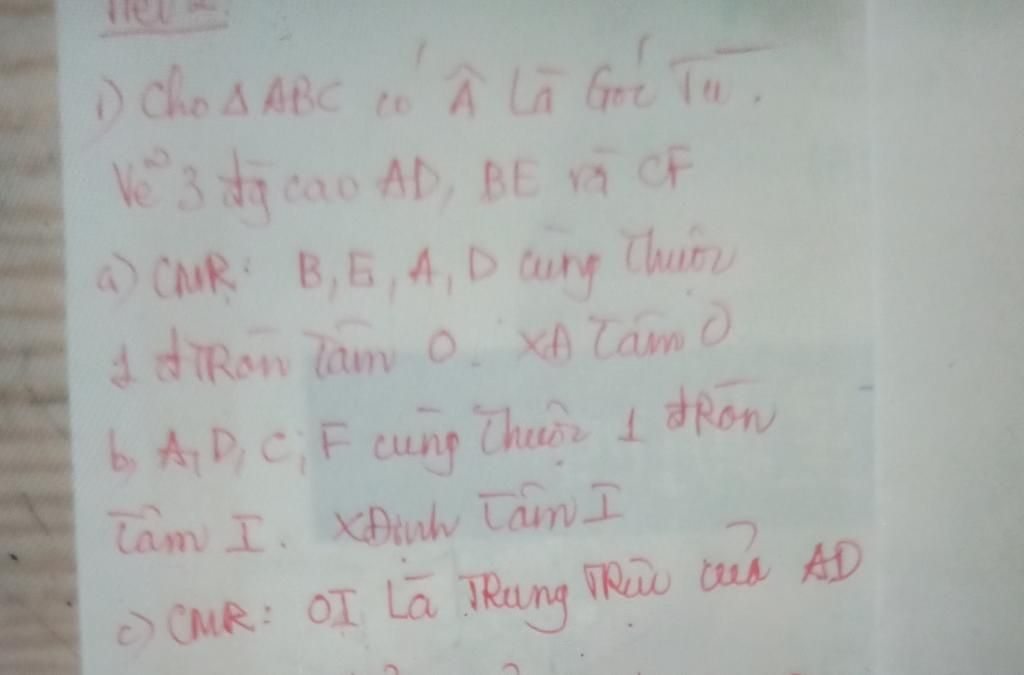 1) Cho Δ ABC có Â Là Góc Tù.
Vẽ 3 đg cao AD, BE và CF
a) CMR: B, E, A, D cùng thuộc
1 đTRòn Tâm O. XĐ Tâm O
b, A, D, C, F cùng thuộc 1 đRòn
Tâm I. XĐịnh Tâm I
c) CMR: OI Là TRung TRực của AD